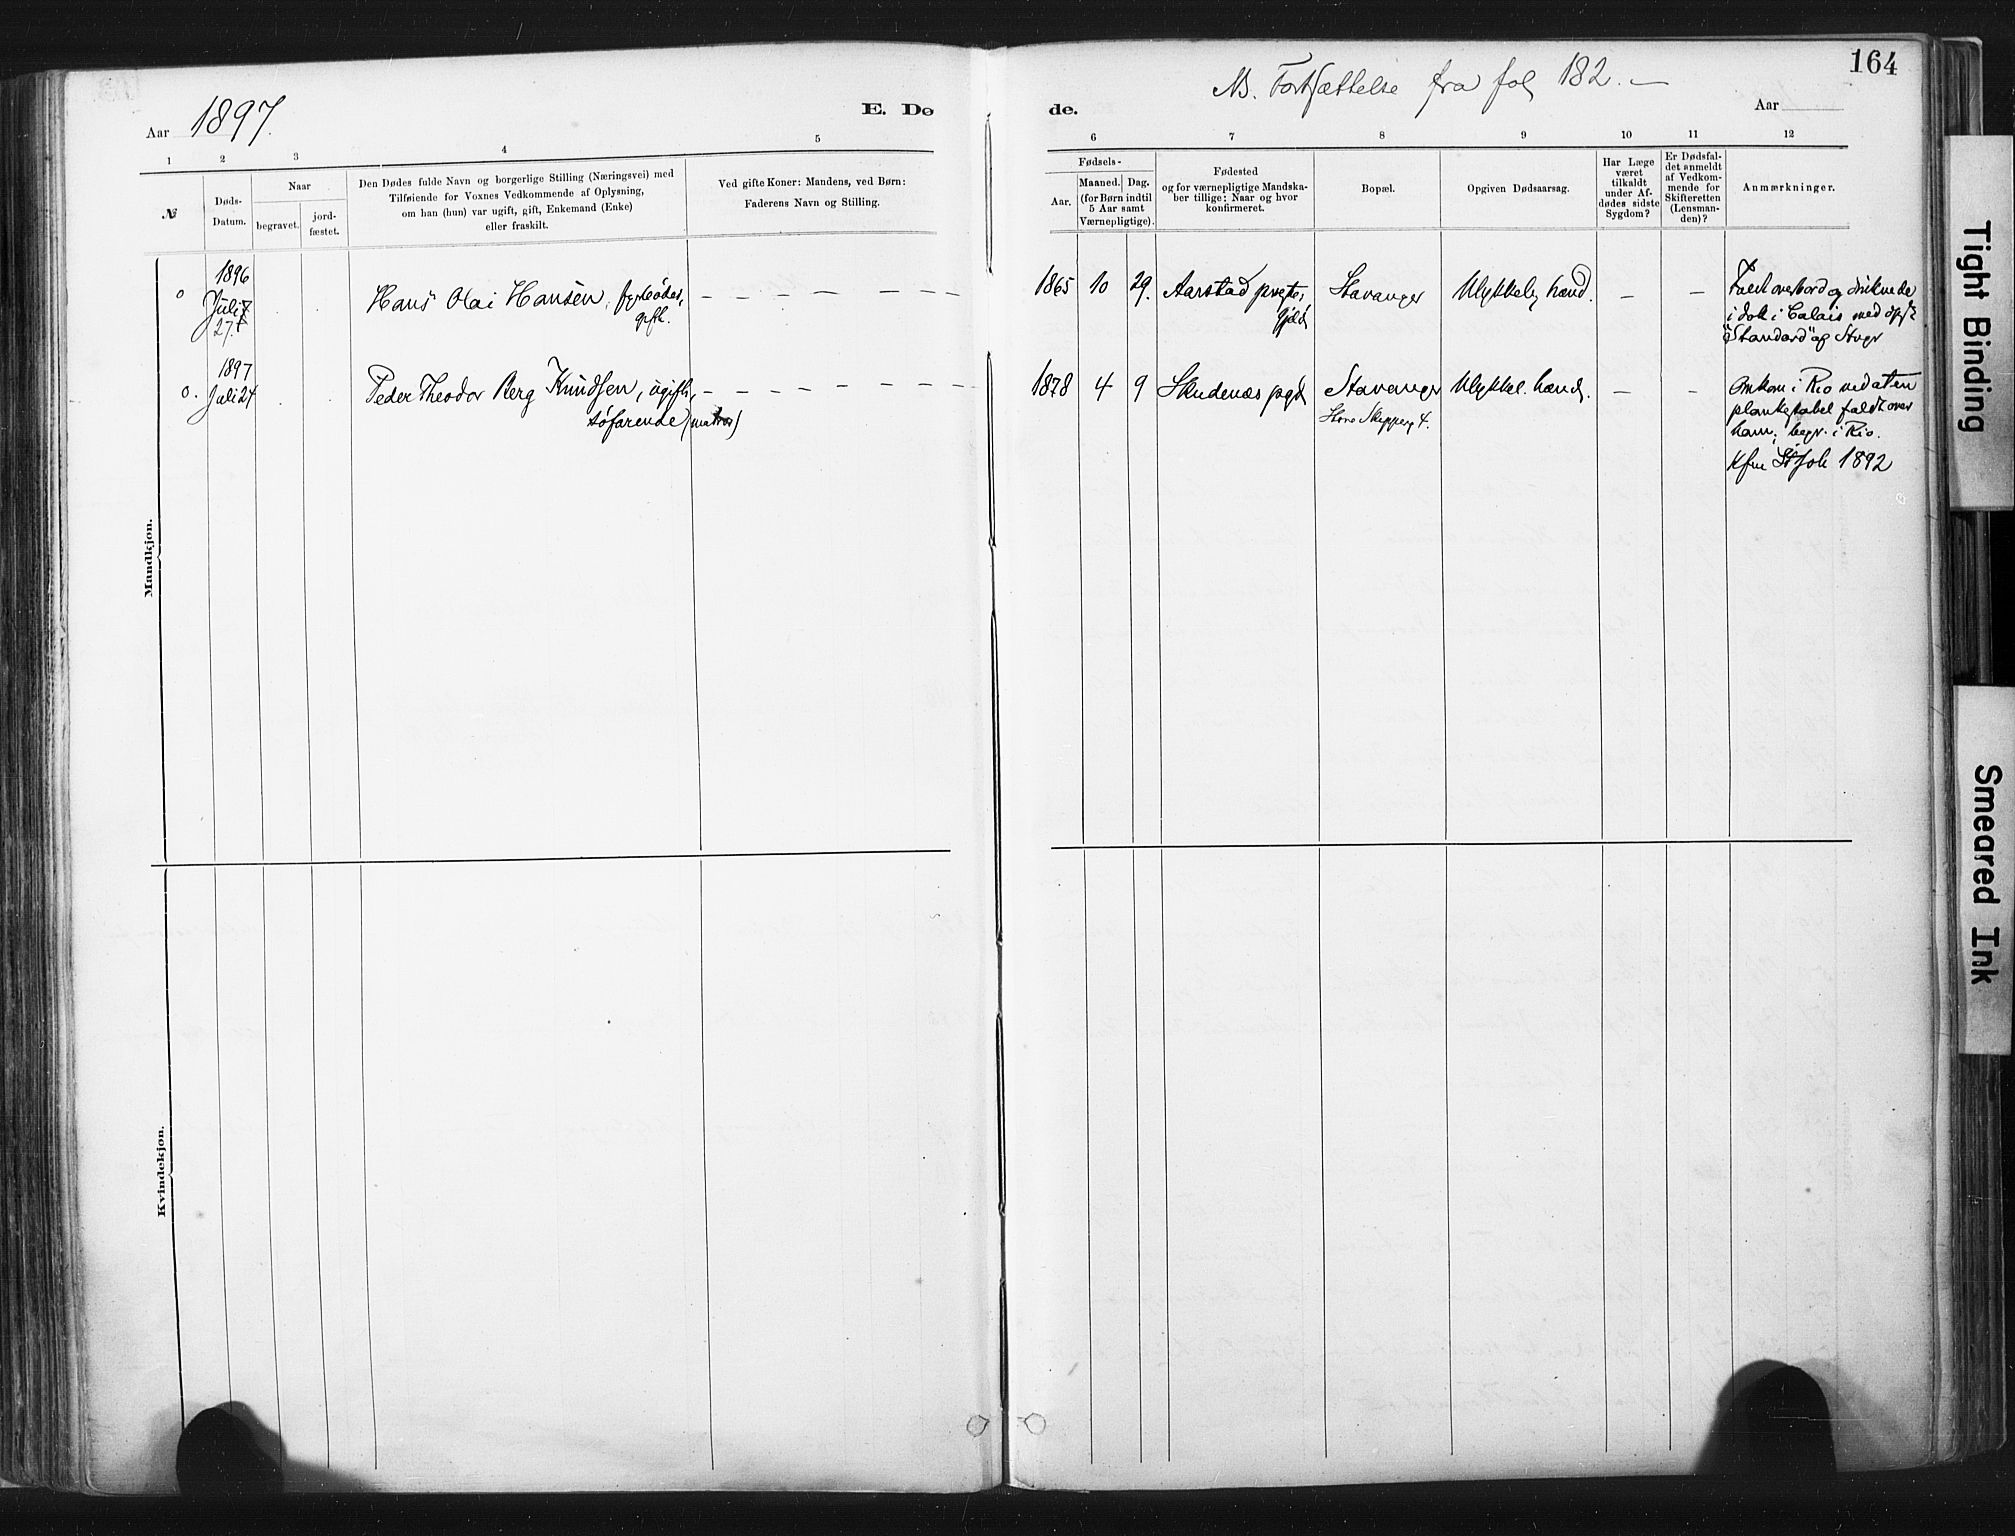 164
NB. Fortsættelse fra fol 182. —
Aar 1897.
E. Dø
de.
Aar
1 2 3 4 5
6 7 8 9 10 11 12
№
Døds-
Datum.
Naar
begravet.
jord-
fæstet.
Den Dødes fulde Navn og borgerlige Stilling (Næringsvei) med
Tilføiende for Voxnes Vedkommende af Oplysning,
om han (hun) var ugift, gift, Enkemand (Enke)
eller fraskilt.
Ved gifte Koner: Mandens, ved Børn:
Faderens Navn og Stilling.
Fødsels-
Aar.
Maaned. Dag.
(for Børn indtil
5 Aar samt
Værnepligtige).
Fødested
og for værnepligtige Mandska-
ber tillige: Naar og hvor
konfirmeret.
Bopæl.
Opgiven Dødsaarsag.
Har Læge
været
tilkaldt
under Af-
dødes sidste
Sygdom?
Er Dødsfal-
det anmeldt
af Vedkom-
mende for
Skifteretten
(Lensman-
den)?
Anmærkninger.
Mandkjøn.
o
1896
Juli
27.
Hans Olai Hansen,
gift.
— — — — — — — —
1865 10 29.
Aarstad
Stavanger
Ulykkelig hænd.
— —
Faldt overbord og druknede
i dok i Calais med
"Standard" af Stvgr
o.
1897
Juli 24
Peder Theodor Berg Knudsen, ugift,
søfarende (matros)
— — — — — — — —
1878 4 9
Skudenæs pgd
Stavanger
Store Skipperg 4.
Ulykkel. hænd.
— —
Omkom i Rio ved at en
plankestabel faldt over
ham; begr. i Rio.
Kfm St Joh 1892
Kvindekjøn.
Tight Binding
Smeared Ink